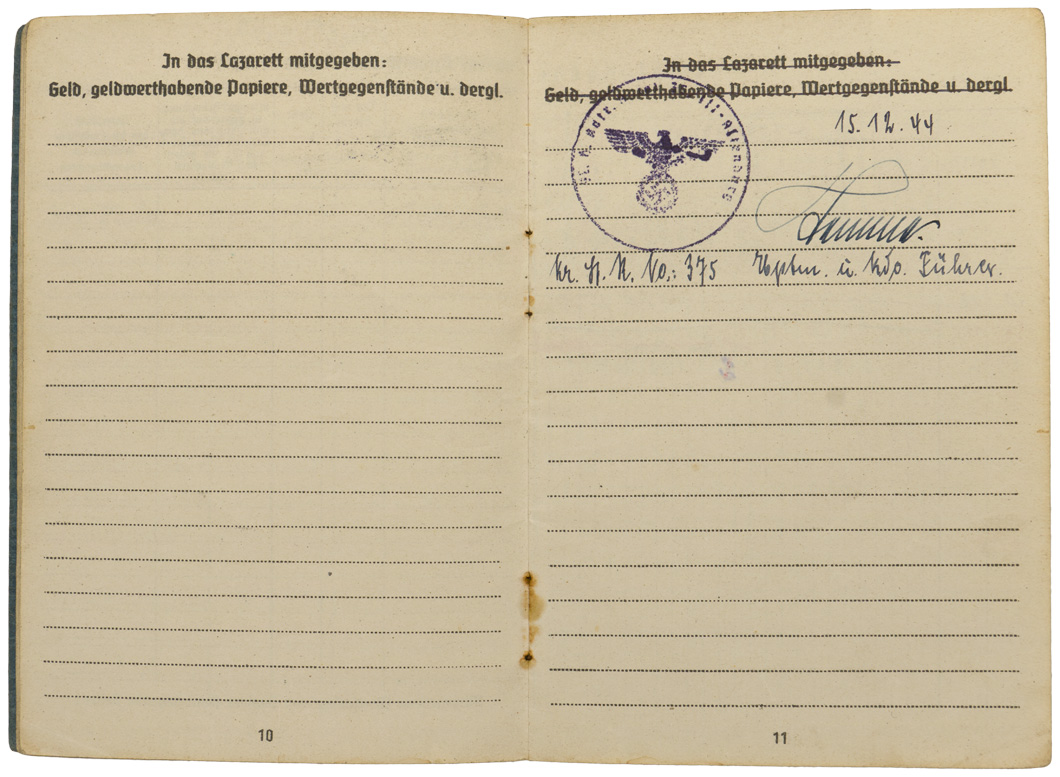 In das Lazarett mitgegeben:
Geld, geldwerthabende Papiere, Wertgegenstände u. dergl.
10
In das Lazarett mitgegeben:
Geld, geldwerthabende Papiere, Wertgegenstände u. dergl.
15.12.44
Kr. No.: 375 Hptm. u. Kdo. Führer.
11